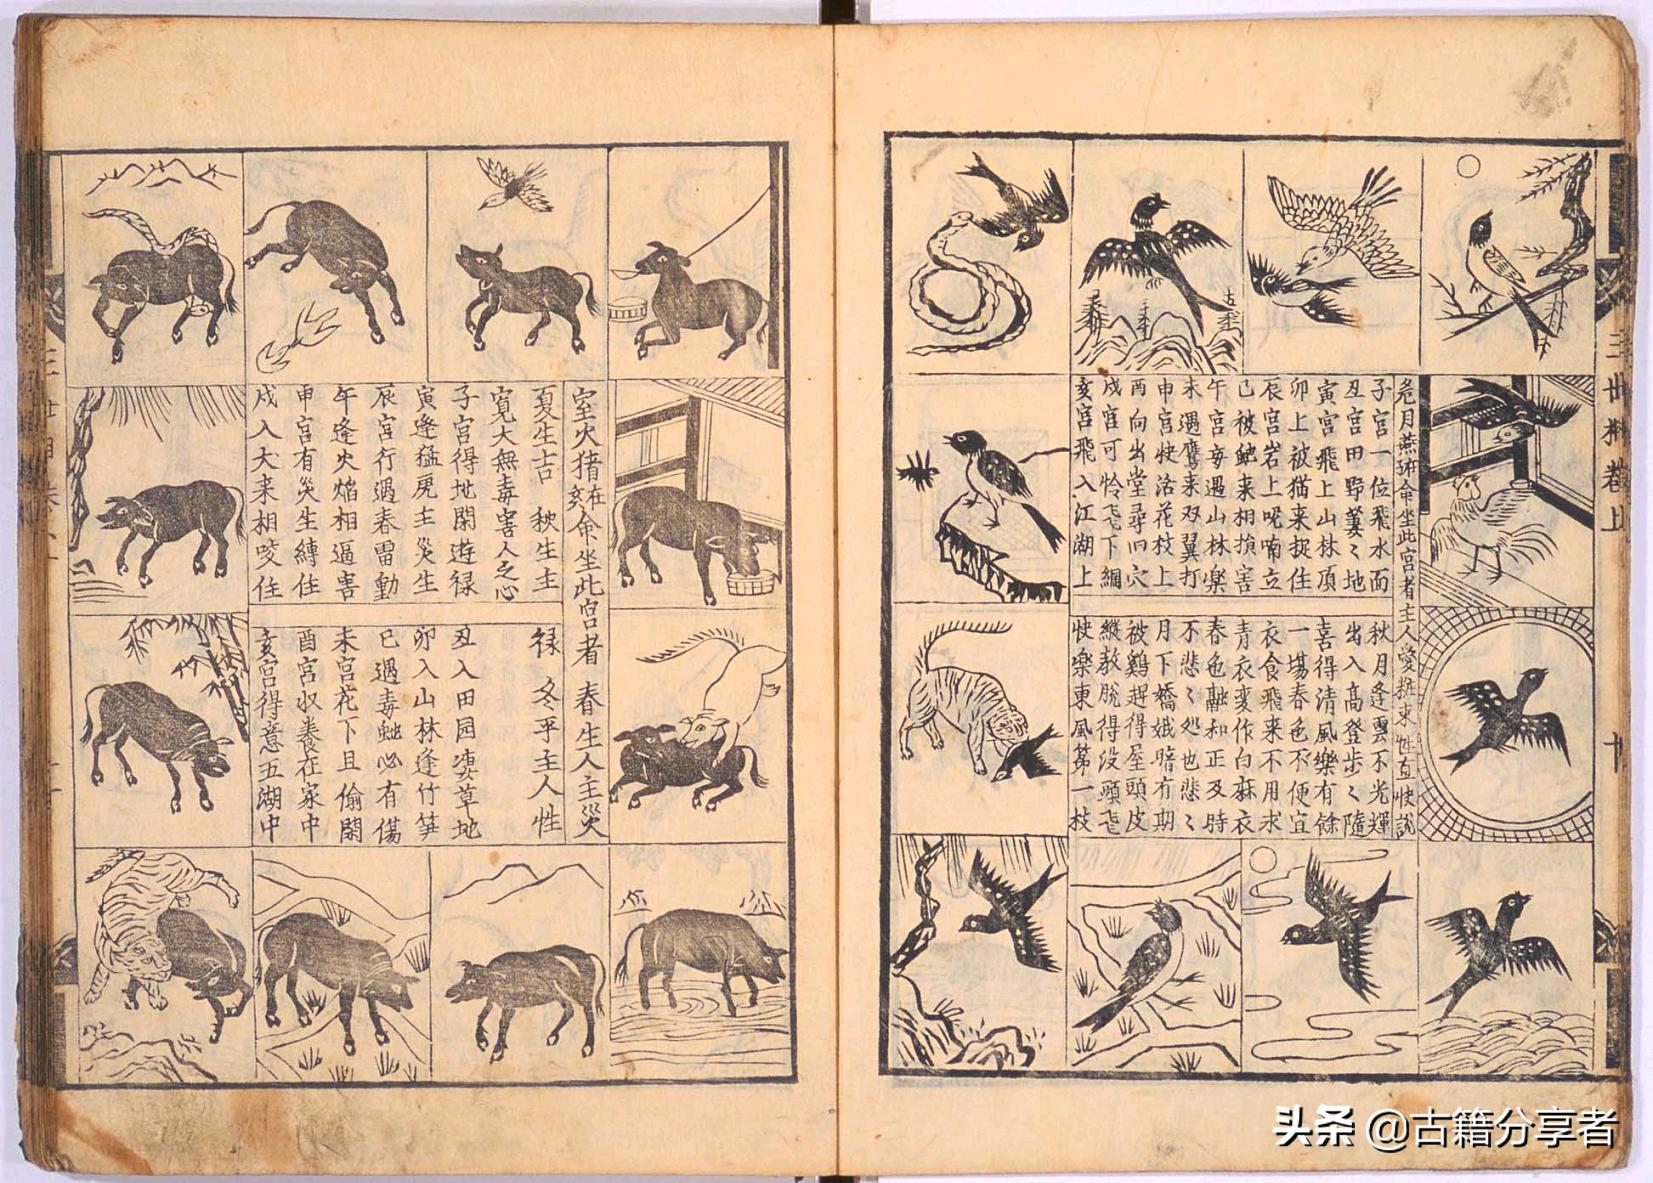 三世相卷上
十
危月燕
命坐此宮者主人愛粧束性直快說
子宮一位飛水面
丑宮田野萋〻地
寅宮飛上山林頂
卯上被猫来捉住
辰宮岩上呢喃立
巳被蛇来相損害
午宮每遇山林樂
未遇鷹来双翼打
申宮快活花枝上
酉向出堂尋旧穴
戌宮可怜飞下網
亥宮飛入江湖上
秋月逢雲不光輝
出入高登步〻隨
喜得清風樂有餘
一塲春色不便宜
衣食飛来不用求
青衣变作白蔴衣
春色融和正及時
不悲〻処也悲〻
月下嬌娥暗有期
被鷄趕得屋頭皮
縱教脫得没頭飞
快樂東風第一枝
室火猪在亥命坐此宮者 春生人主災
夏生吉 秋生主
禄 冬平主人性
寬大無毒害人之心
子宮得地閑遊禄
丑入田园凄草地
寅逢猛虎主災生
卯入山林逢竹笋
辰宮行過春雷動
巳遇毒蚍必有傷
午逢火焰相逼害
未宮花下且偷閑
申宮有災生縛住
酉宮収養在家中
戌入犬来相咬住
亥宮得意五湖中
头条 @古籍分享者